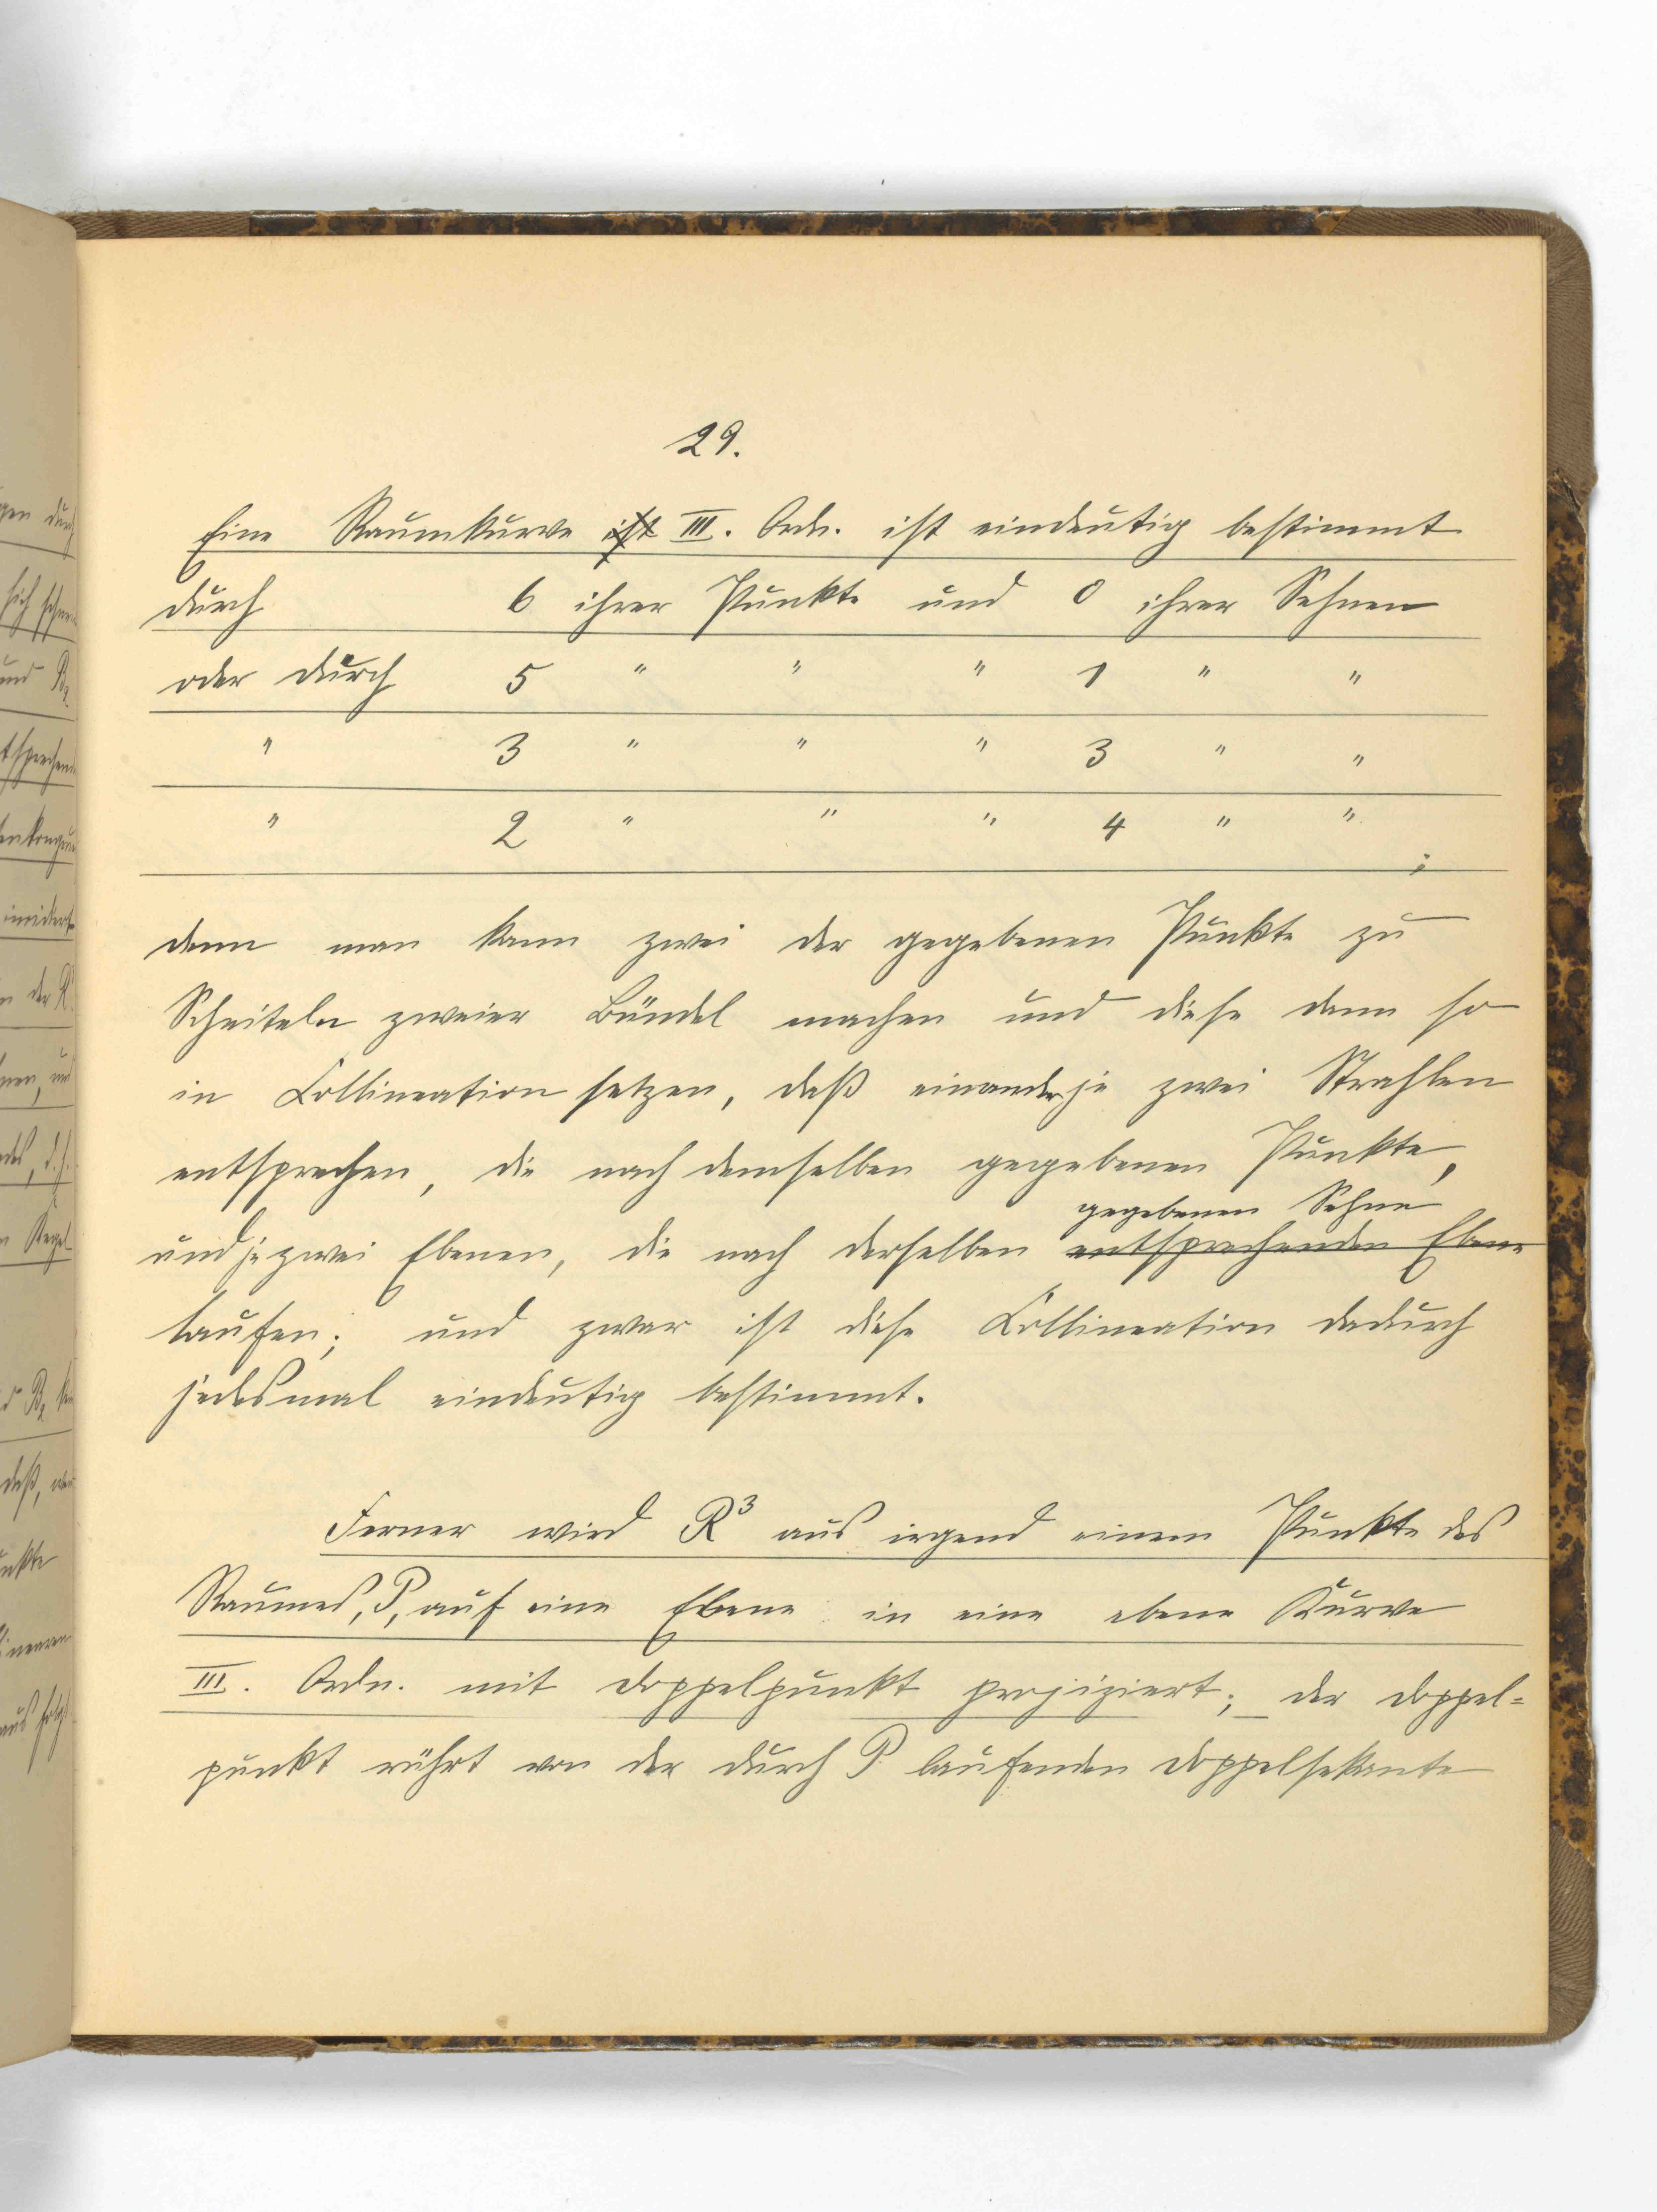 29.
Eine Raumkurve ist III. Ordn. ist eindeutig bestimmt
durch 6 ihrer Punkte und 0 ihrer Sehnen
oder durch 5 " " " 1 " "
" 3 " " " 3 " "
" 2 " " " 4 " " ;
denn man kann zwei der gegebenen Punkte zu
Scheiteln zweier Bündel machen und diese dann so
in Collineation setzen, daß einander je zwei Strahlen
entsprechen, die nach demselben gegebenen Punkte,
gegebenen Sehne
und je zwei Ebenen, die nach derselben entsprechenden Ebene
laufen; und zwar ist diese Collineation dadurch
jedesmal eindeutig bestimmt.
Ferner wird R³ aus irgend einem Punkte des
Raumes, P, auf eine Ebene in eine ebene Kurve
III. Ordn. mit Doppelpunkt projiziert; der Doppel=
punkt rührt von der durch P laufenden Doppelsekante